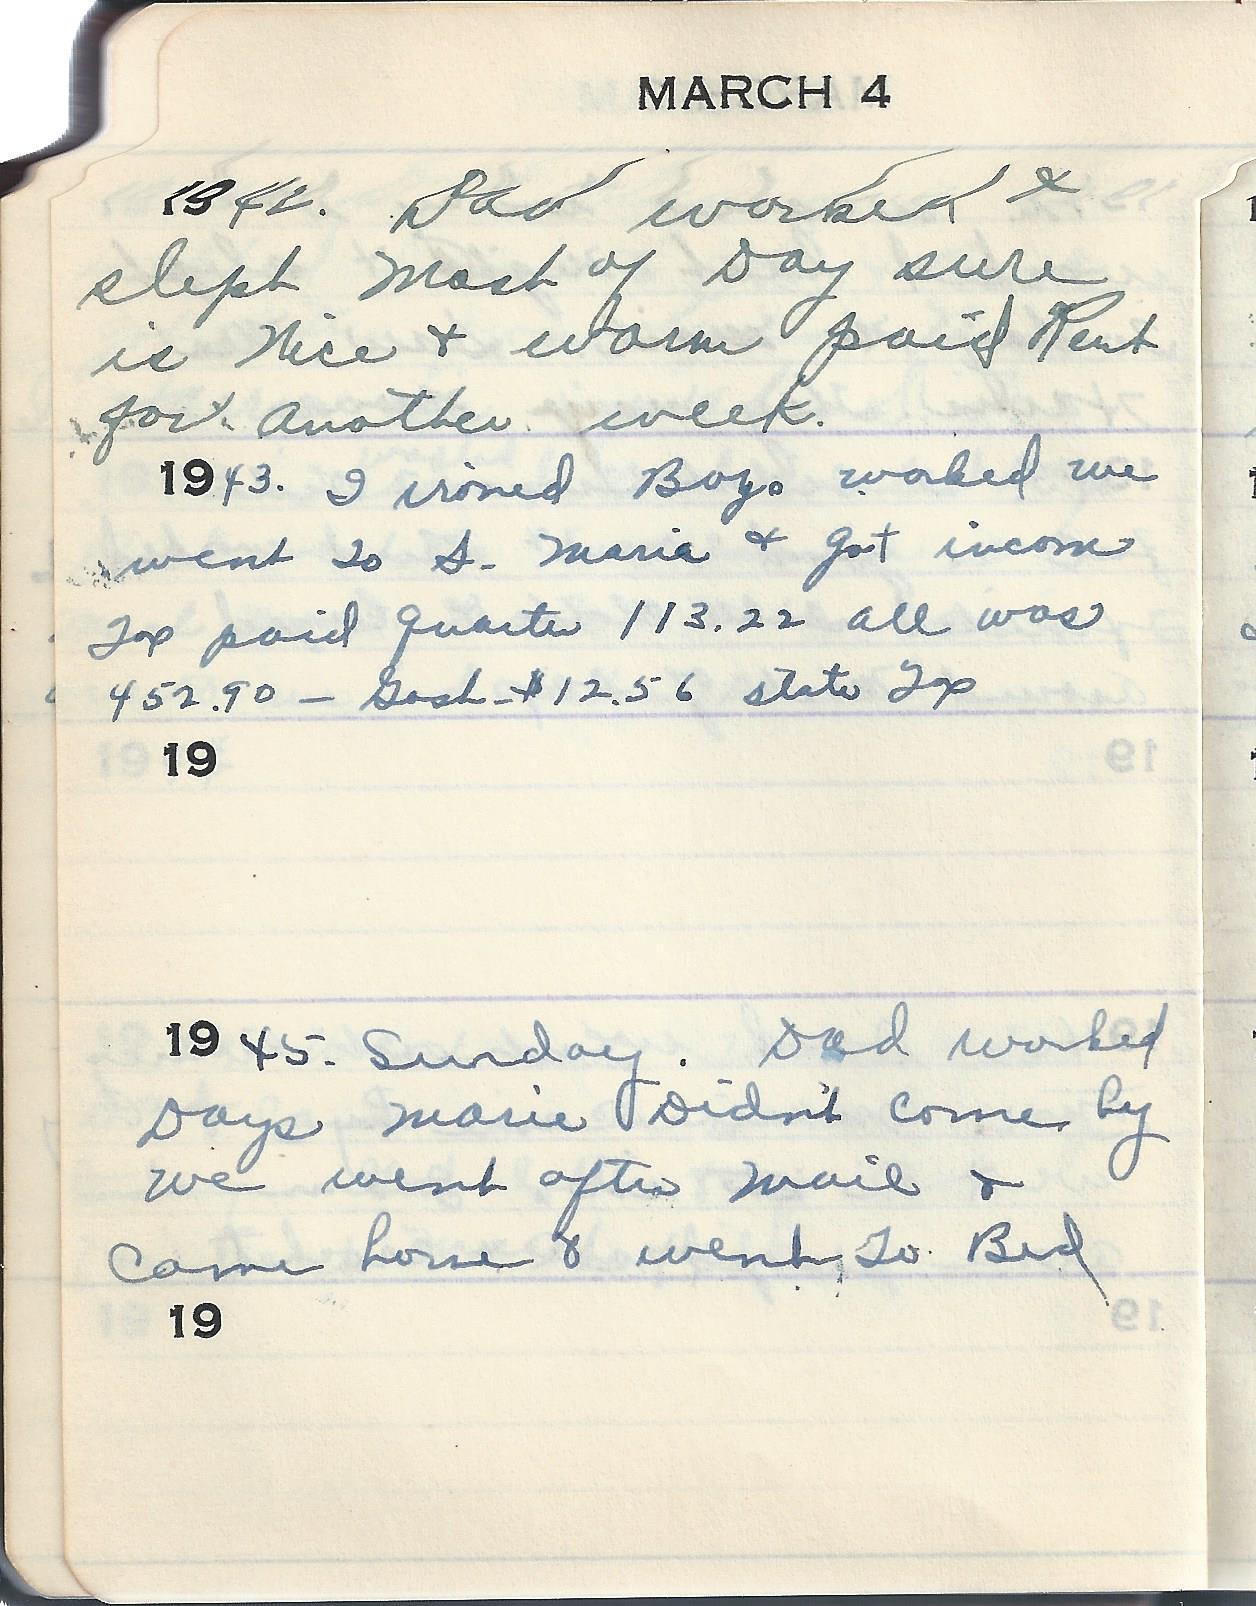 MARCH 4
1942. Dad worked &
slept Most of Day sure
is Nice & warm paid Rent
for another week.
1943. I ironed Boys worked we
went to S. Maria & got income
Tax paid quarter 113.22 all was
452.90 — Gosh - $12.56 state Tax
19
1945. Sunday. Dad worked
Days Marie Didn't come by
we went after mail &
came home & went to Bed
19